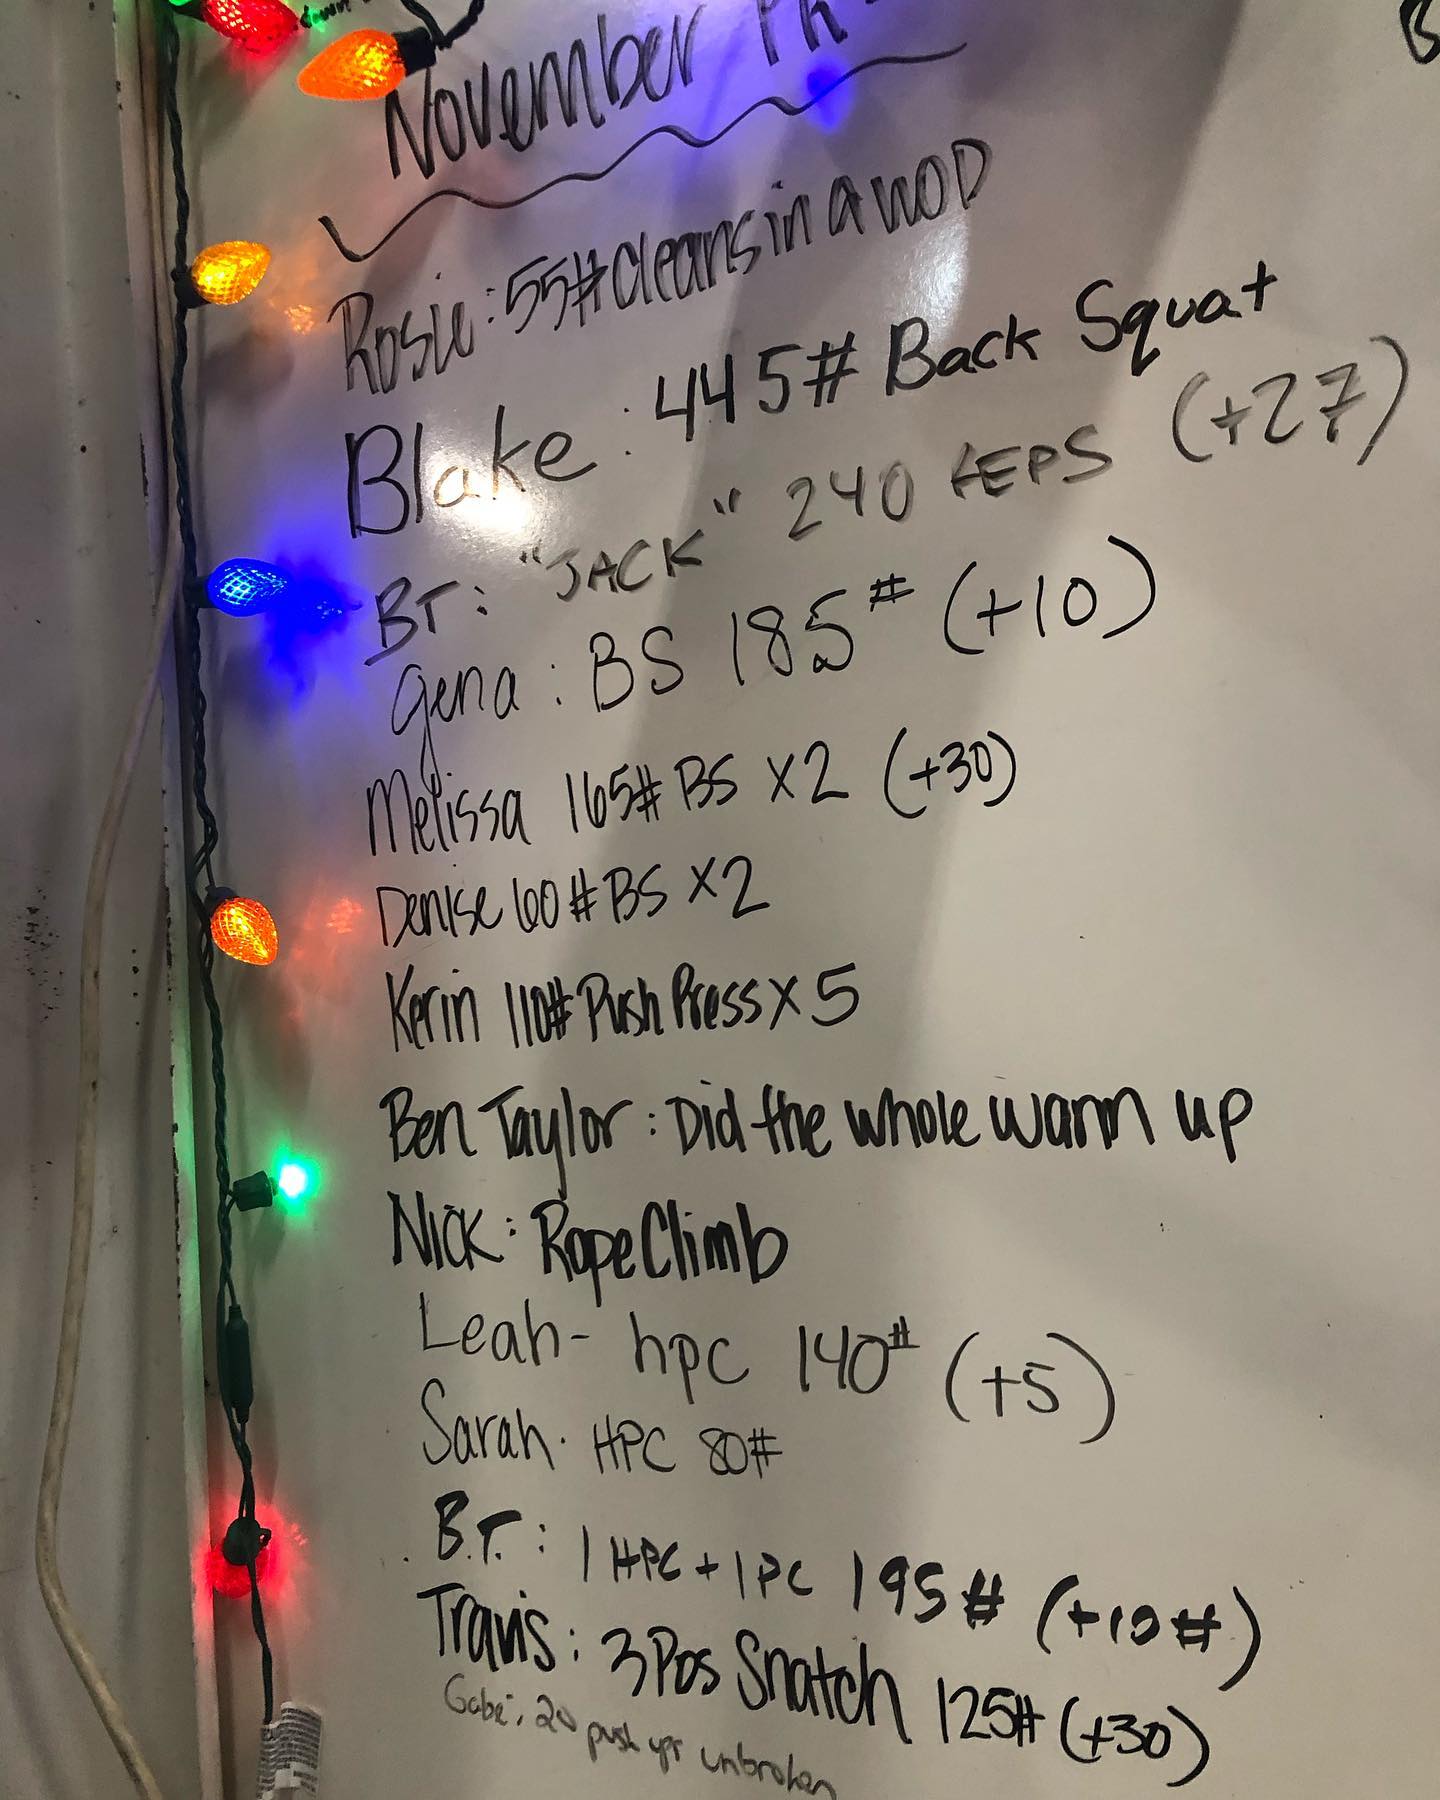 November PR
Rosie: 55# cleans in a WOD
Blake: 445# Back Squat
BT: "JACK" 240 REPS (+27)
Gena: BS 185# (+10)
Melissa 165# BS x2 (+30)
Denise 60# BS x2
Kerin 110# Push Press x 5
Ben Taylor: Did the whole warm up
Nick: Rope Climb
Leah- hpc 140# (+5)
Sarah. HPC 80#
B.T.: 1 HPC + 1 PC 195# (+10#)
Travis: 3 Pos Snatch 125# (+30)
Gabe: 20 push ups unbroken